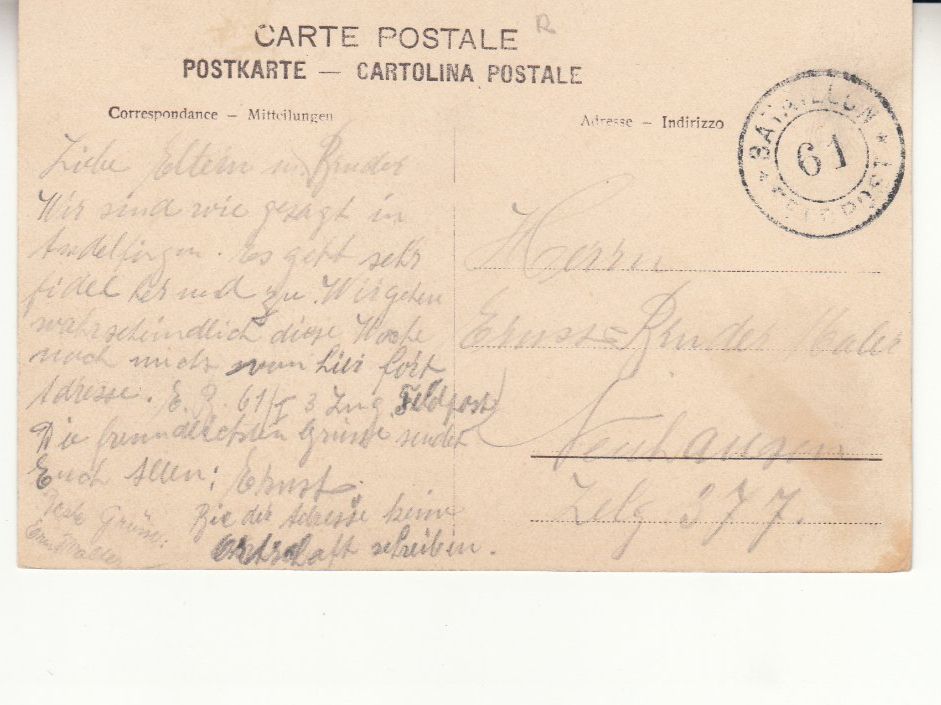 CARTE POSTALE
R
POSTKARTE — CARTOLINA POSTALE
Correspondance – Mitteilungen
Adresse – Indirizzo
BATAILLON
61
FELDPOST
Liebe Eltern u. Bruder
Wir sind wie gesagt in
Andelfingen. es geht sehr
fidel her und zu. Wir gehen
wahrscheindlich diese Woche
noch nicht von hier fort
Adresse. E. B. 61/I 3 Zug Feldpost
Die freundlichsten Grüsse sendet
Euch Allen: Ernst.
Beste Grüsse:
Bie der Adresse keine
Ortschaft schreiben.
Herrn
Ernst Bruder Maler
Neuhausen
Zelg 377.